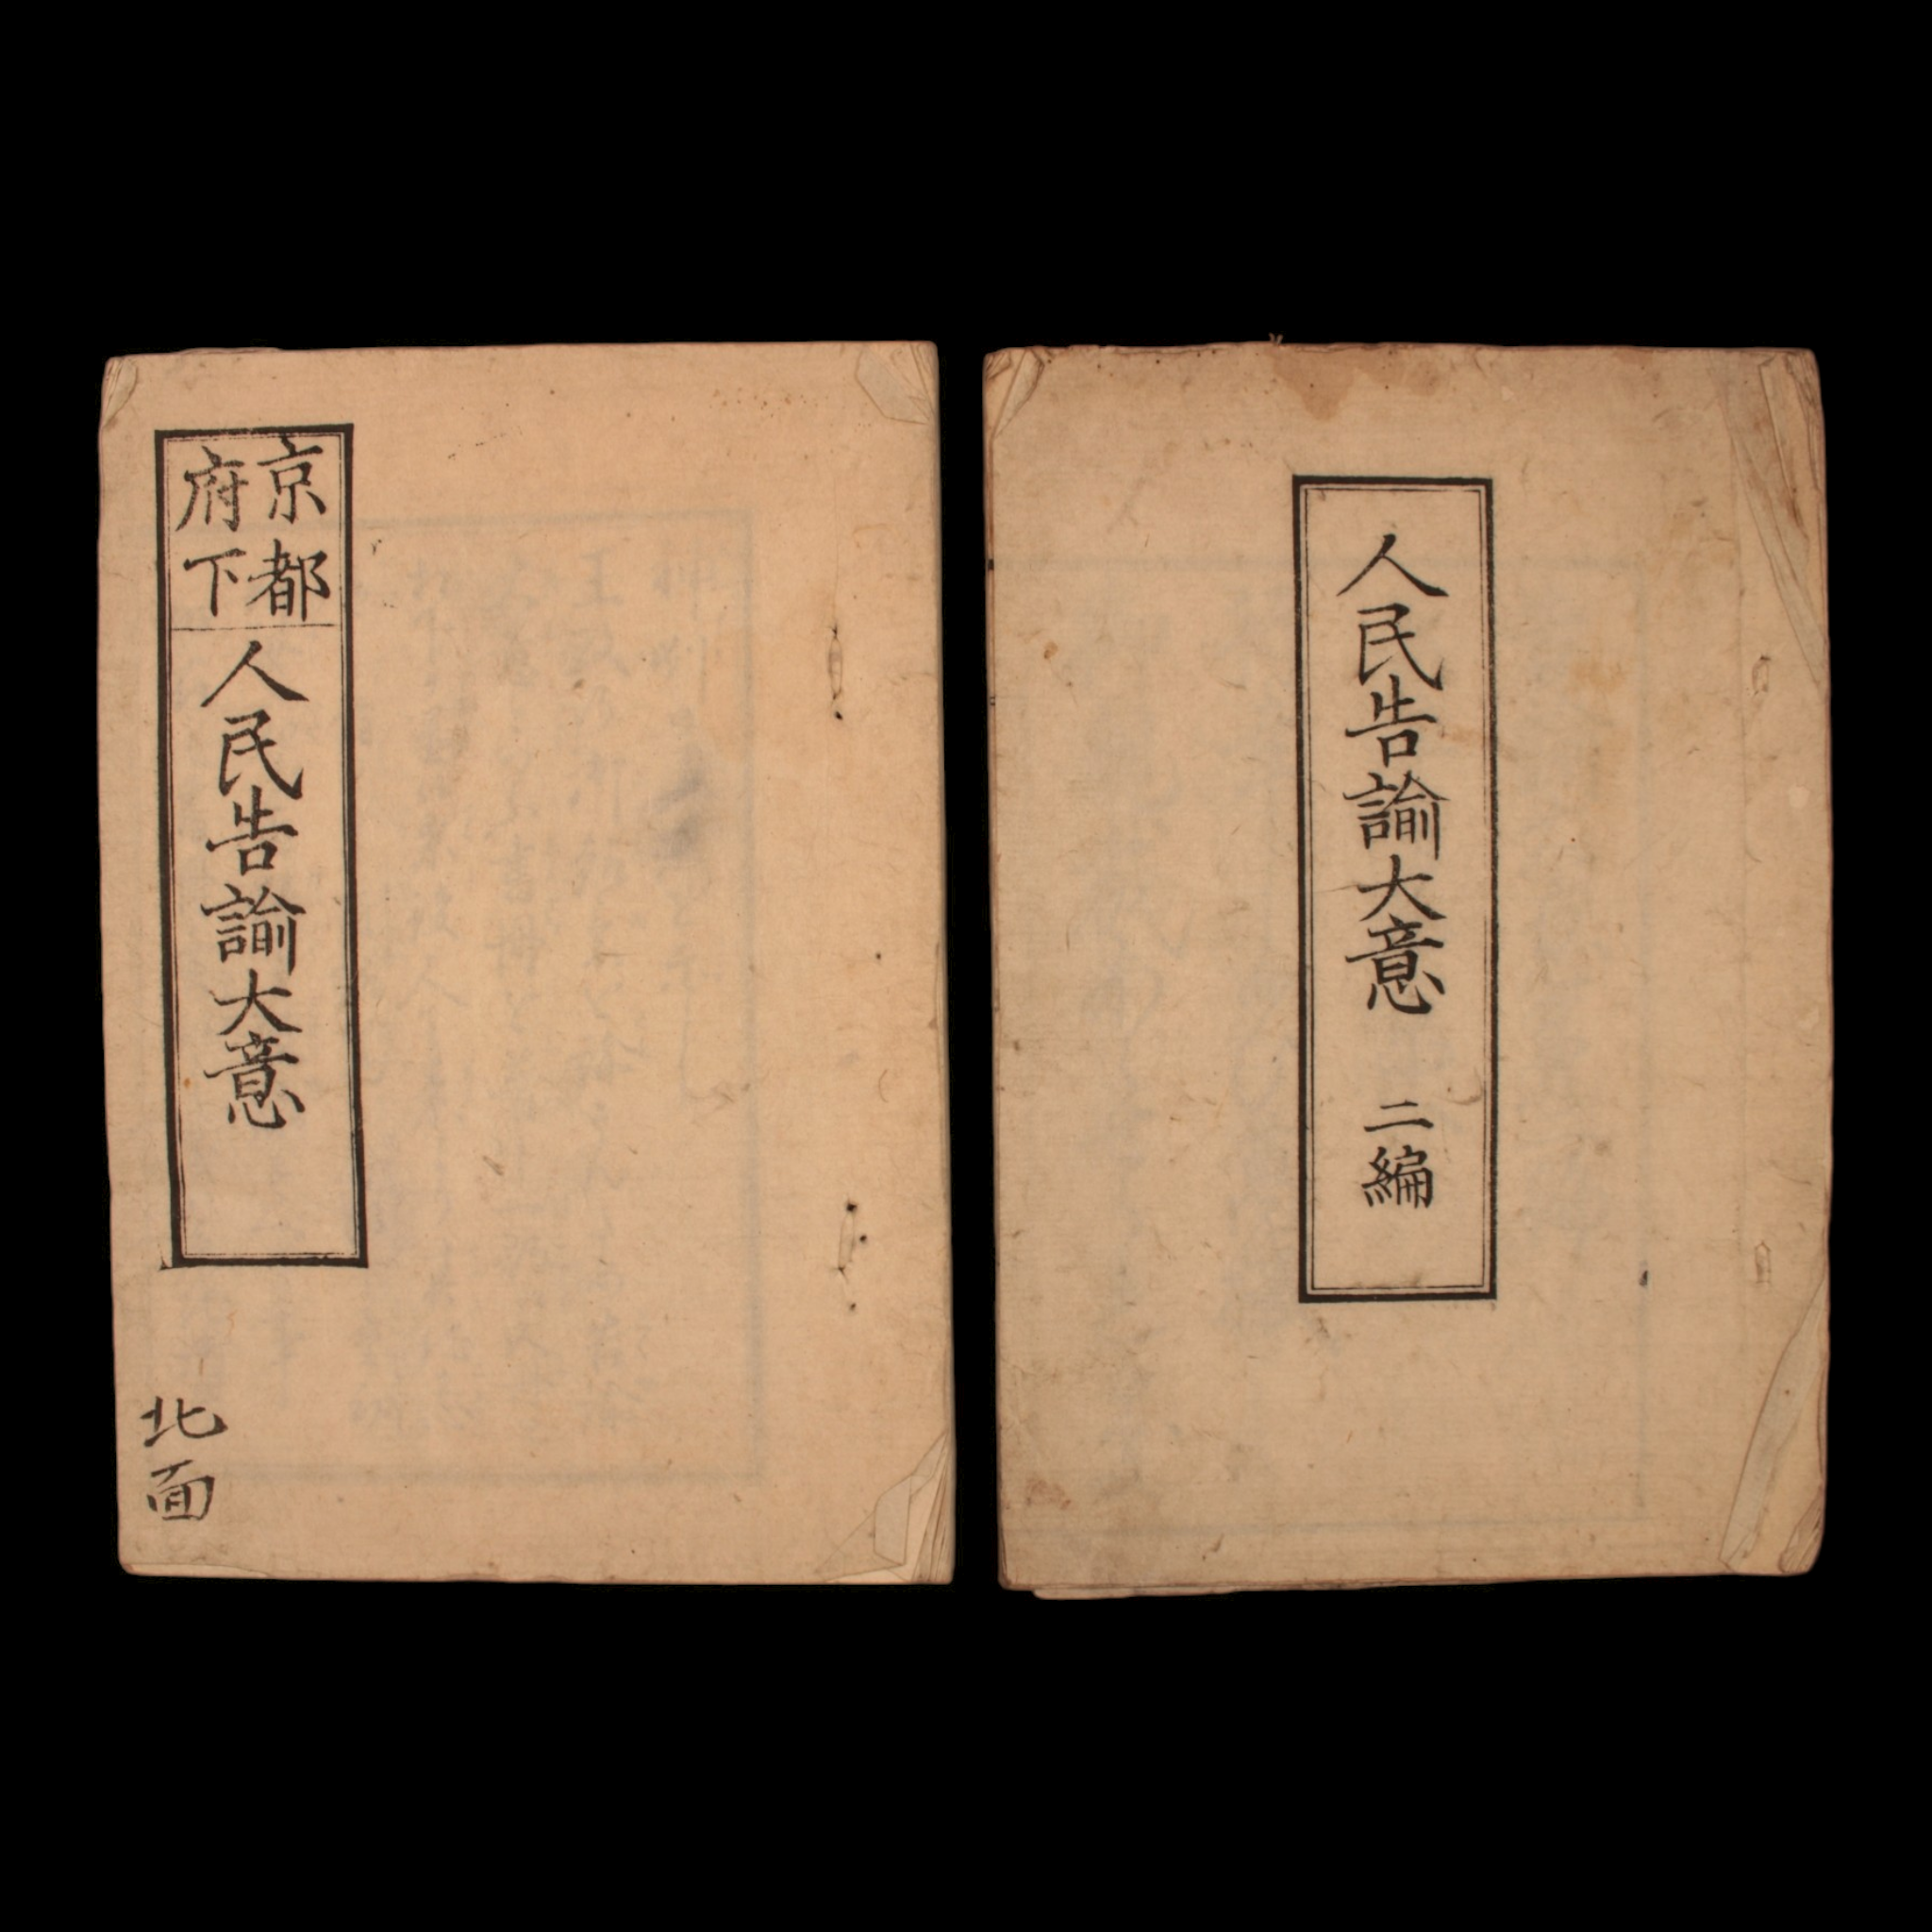 京都
府下
人民告諭大意
北面
人民告諭大意 二編